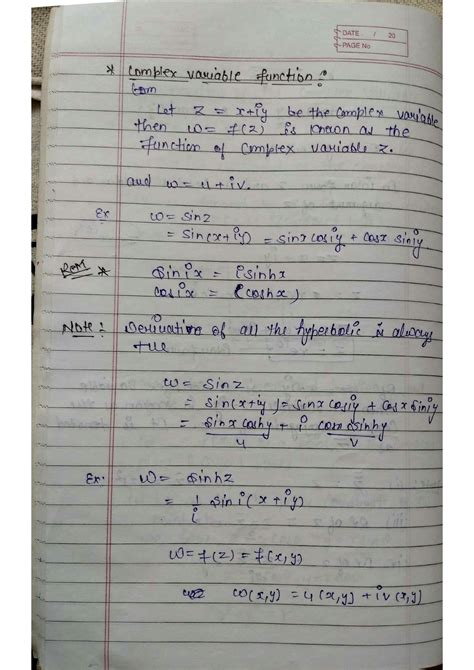 DATE / 20
PAGE No
* Complex variable function :
Let z = x+iy be the complex variable
then w = f(z) is known as the
function of complex variable z.
and w = u + iv.
Ex w = sin z
= sin(x+iy) = sinx cosiy + cosx siniy
Rem * sin ix = i sinhx
cos ix = (coshx)
Note : Derivation of all the hyperbolic is always
+ve
w = sin z
= sin(x+iy) = sinx cosiy + cosx siniy
= sinx coshy + i cosx sinhy
u v
Ex. w = sinhz
= 1/i sin i(x+iy)
w = f(z) = f(x,y)
w(x,y) = u(x,y) + iv(x,y)